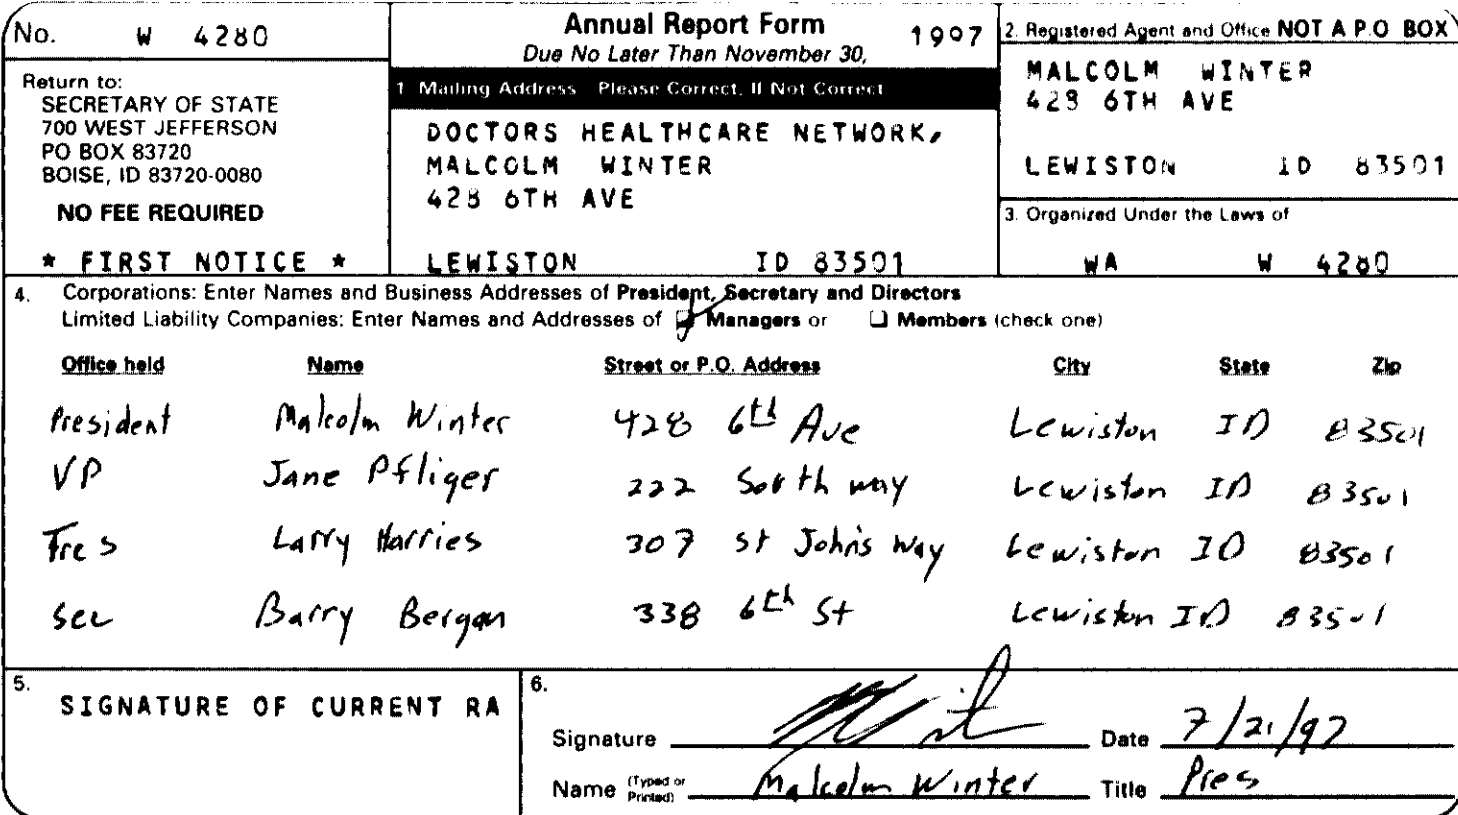 No. W 4280
Return to:
SECRETARY OF STATE
700 WEST JEFFERSON
PO BOX 83720
BOISE, ID 83720-0080
NO FEE REQUIRED
* FIRST NOTICE *
Annual Report Form 1997
Due No Later Than November 30,
1 Mailing Address Please Correct, If Not Correct
DOCTORS HEALTHCARE NETWORK,
MALCOLM WINTER
428 6TH AVE
LEWISTON ID 83501
2. Registered Agent and Office NOT A P.O BOX
MALCOLM WINTER
428 6TH AVE
LEWISTON ID 83501
3. Organized Under the Laws of
WA W 4280
4. Corporations: Enter Names and Business Addresses of President, Secretary and Directors
Limited Liability Companies: Enter Names and Addresses of Managers or Members (check one)
Office held Name Street or P.O. Address City State Zip
President Malcolm Winter 428 6th Ave Lewiston ID 83501
VP Jane Pfliger 222 Southway Lewiston ID 83501
Tres Larry Harries 307 St Johns Way Lewiston ID 83501
Sec Barry Bergan 338 6th St Lewiston ID 83501
5. SIGNATURE OF CURRENT RA
6.
Signature Date 7/21/97
Name (Typed or Printed) Malcolm Winter Title Pres